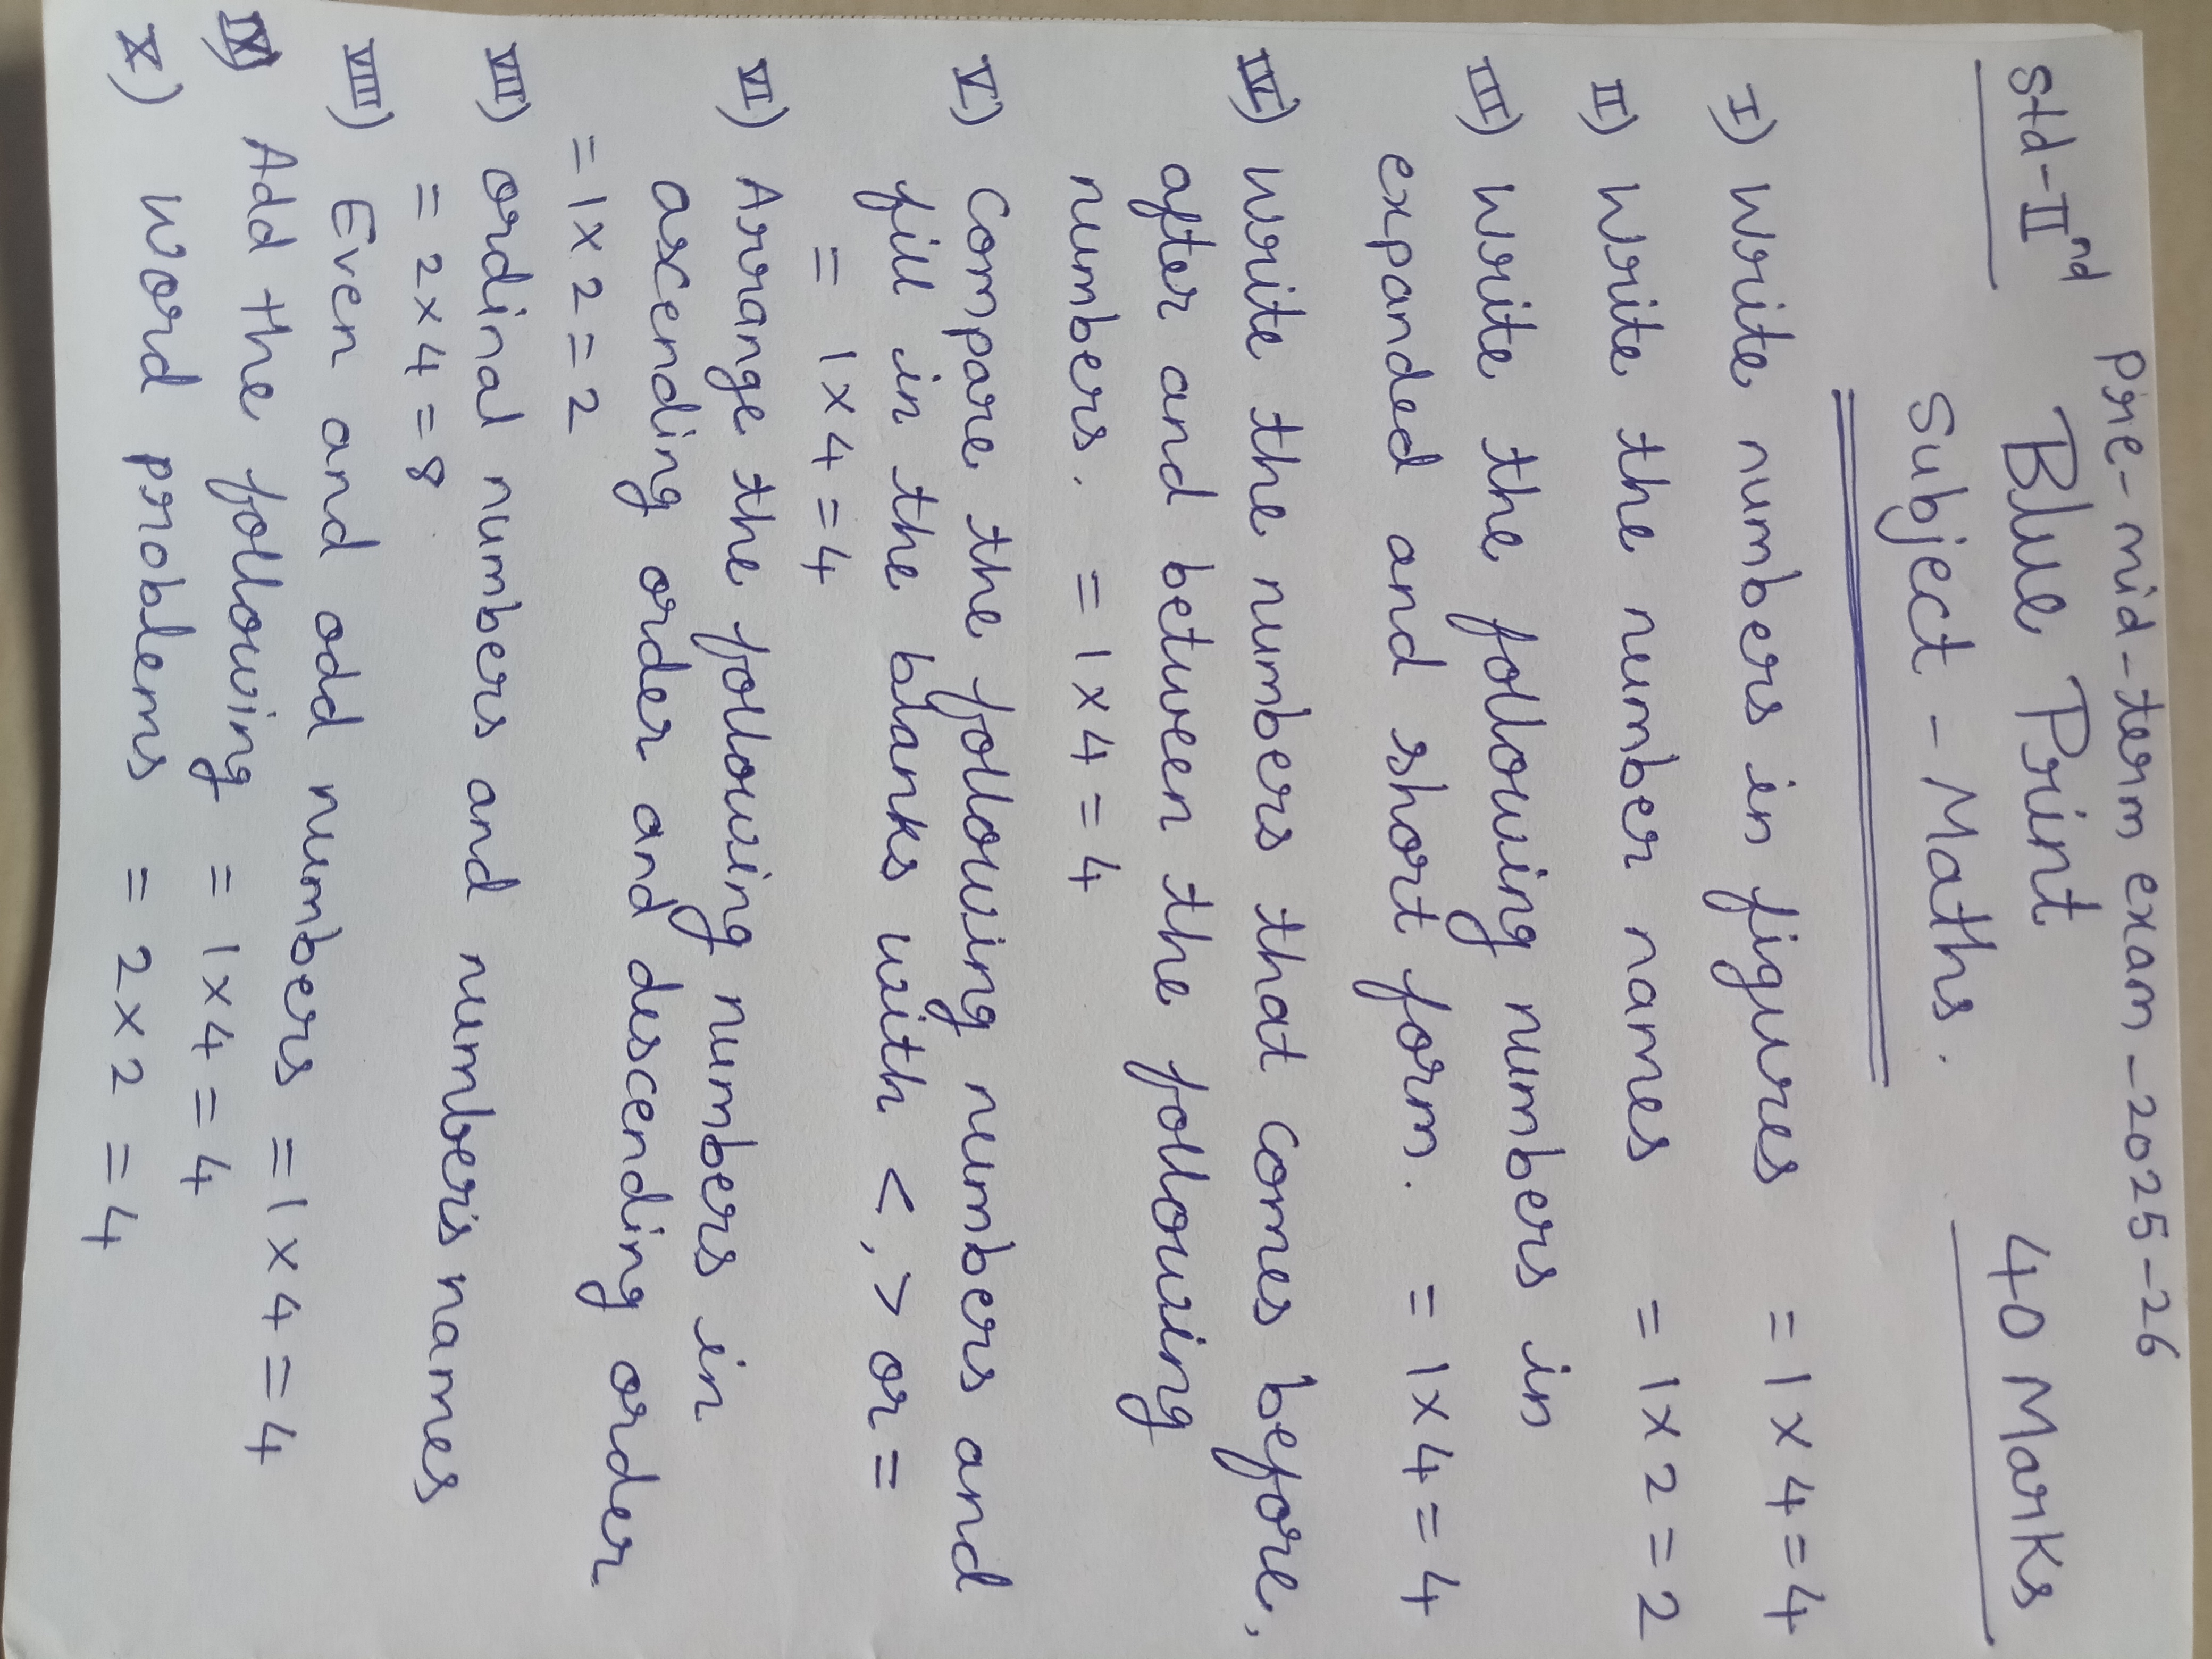 Pre-mid-term exam-2025-26
Std-IInd Blue Print 40 Marks
Subject-Maths.
I) Write numbers in figures = 1x4=4
II) Write the number names = 1x2=2
III) Write the following numbers in
expanded and short form. = 1x4=4
IV) Write the numbers that comes before,
after and between the following
numbers. = 1x4=4
V) Compare the following numbers and
fill in the blanks with <, > or =
= 1x4=4
VI) Arrange the following numbers in
ascending order and descending order
= 1x2=2
VII) ordinal numbers and numbers names
= 2x4=8
VIII) Even and odd numbers = 1x4=4
IX) Add the following = 1x4=4
X) Word problems = 2x2=4